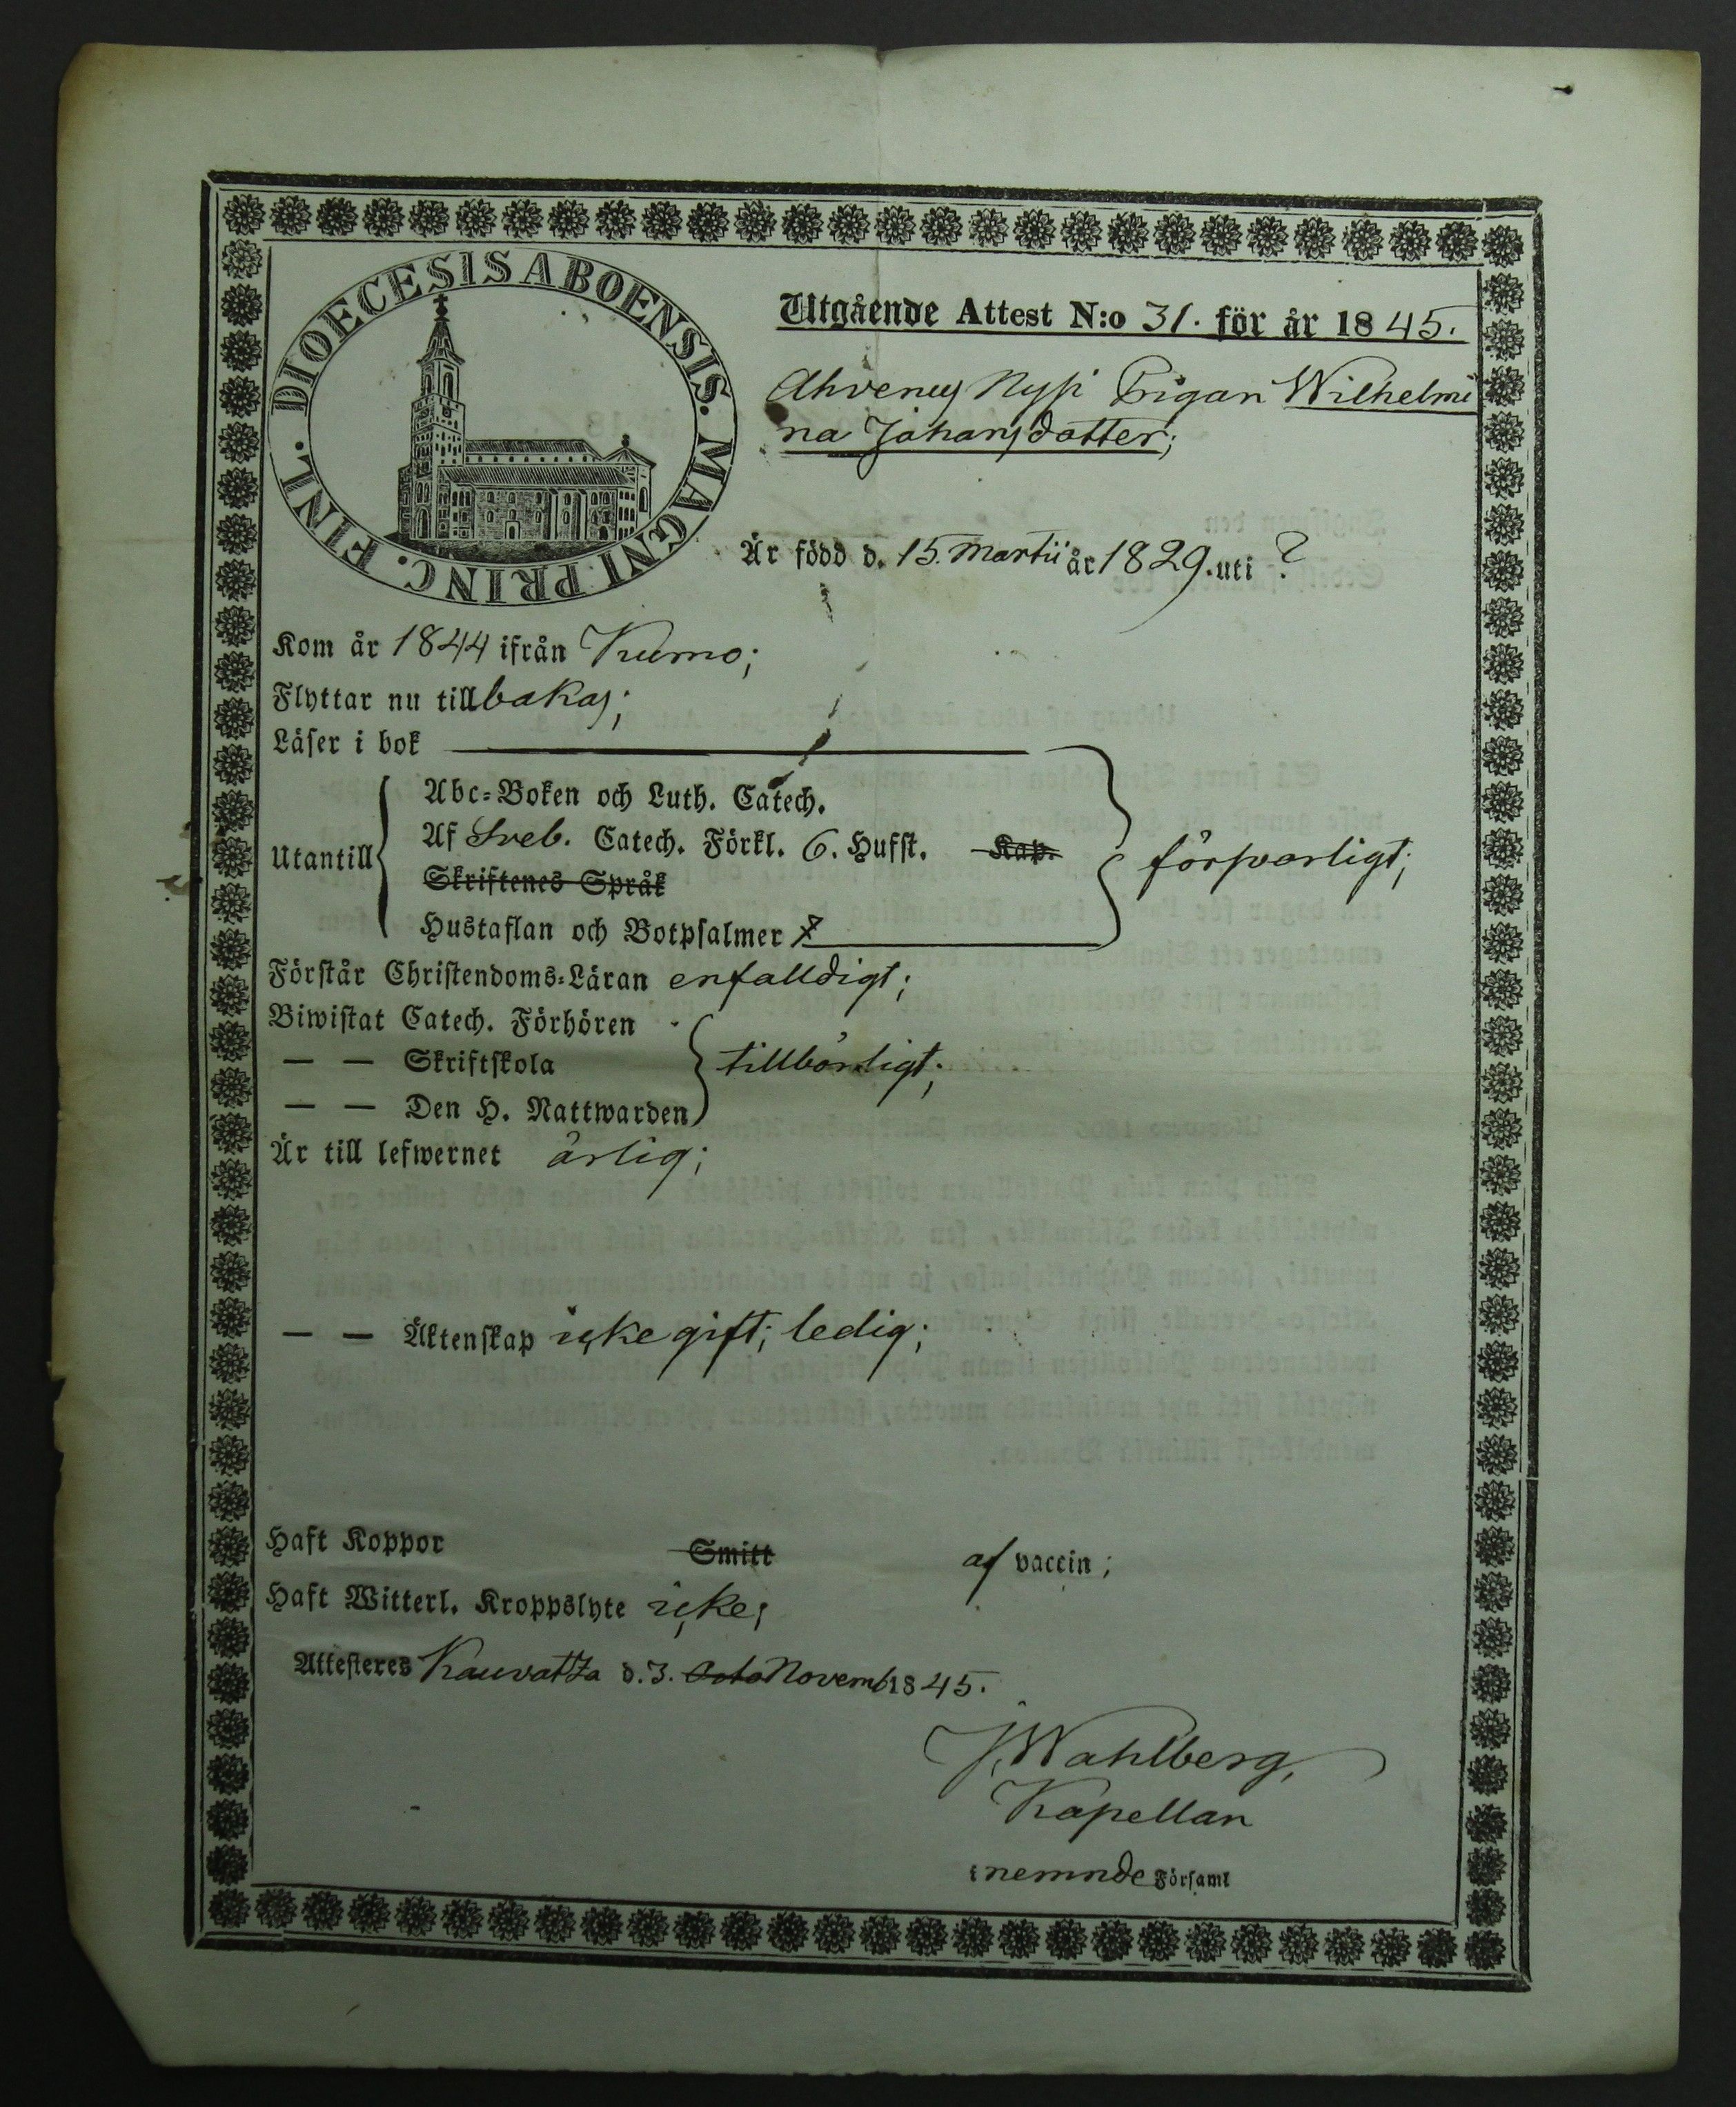 DIOECESIS ABOENSIS. MAGNI PRINC. FINL.
Utgående Attest N:o 31. för år 1845.
Ahvenus Nyssi Pigan Wilhelmi
na Johansdotter;
Är född d. 15. Martii år 1829. uti ?
Kom år 1844 ifrån Kumo;
Flyttar nu tillbakas;
Läser i bok
Utantill
Abc-Boken och Luth. Catech.
Af Sveb. Catech. Förkl. 6. Hufst. Kap.
Skriftenes Språk
Hustaflan och Botpsalmer
försvarligt;
Förstår Christendoms-Läran enfalldigt;
Biwistat Catech. Förhören
— — Skriftskola
— — Den H. Nattwarden
tillbörligt;
Är till lefwernet ärlig;
— — Äktenskap icke gift; ledig;
Haft Koppor Smitt af vaccin;
Haft Witterl. Kroppslyte icke;
Attesteres Kauvatza d. 3. Octo Novemb 1845.
J. Wahlberg,
Kapellan
i nemnde Församl